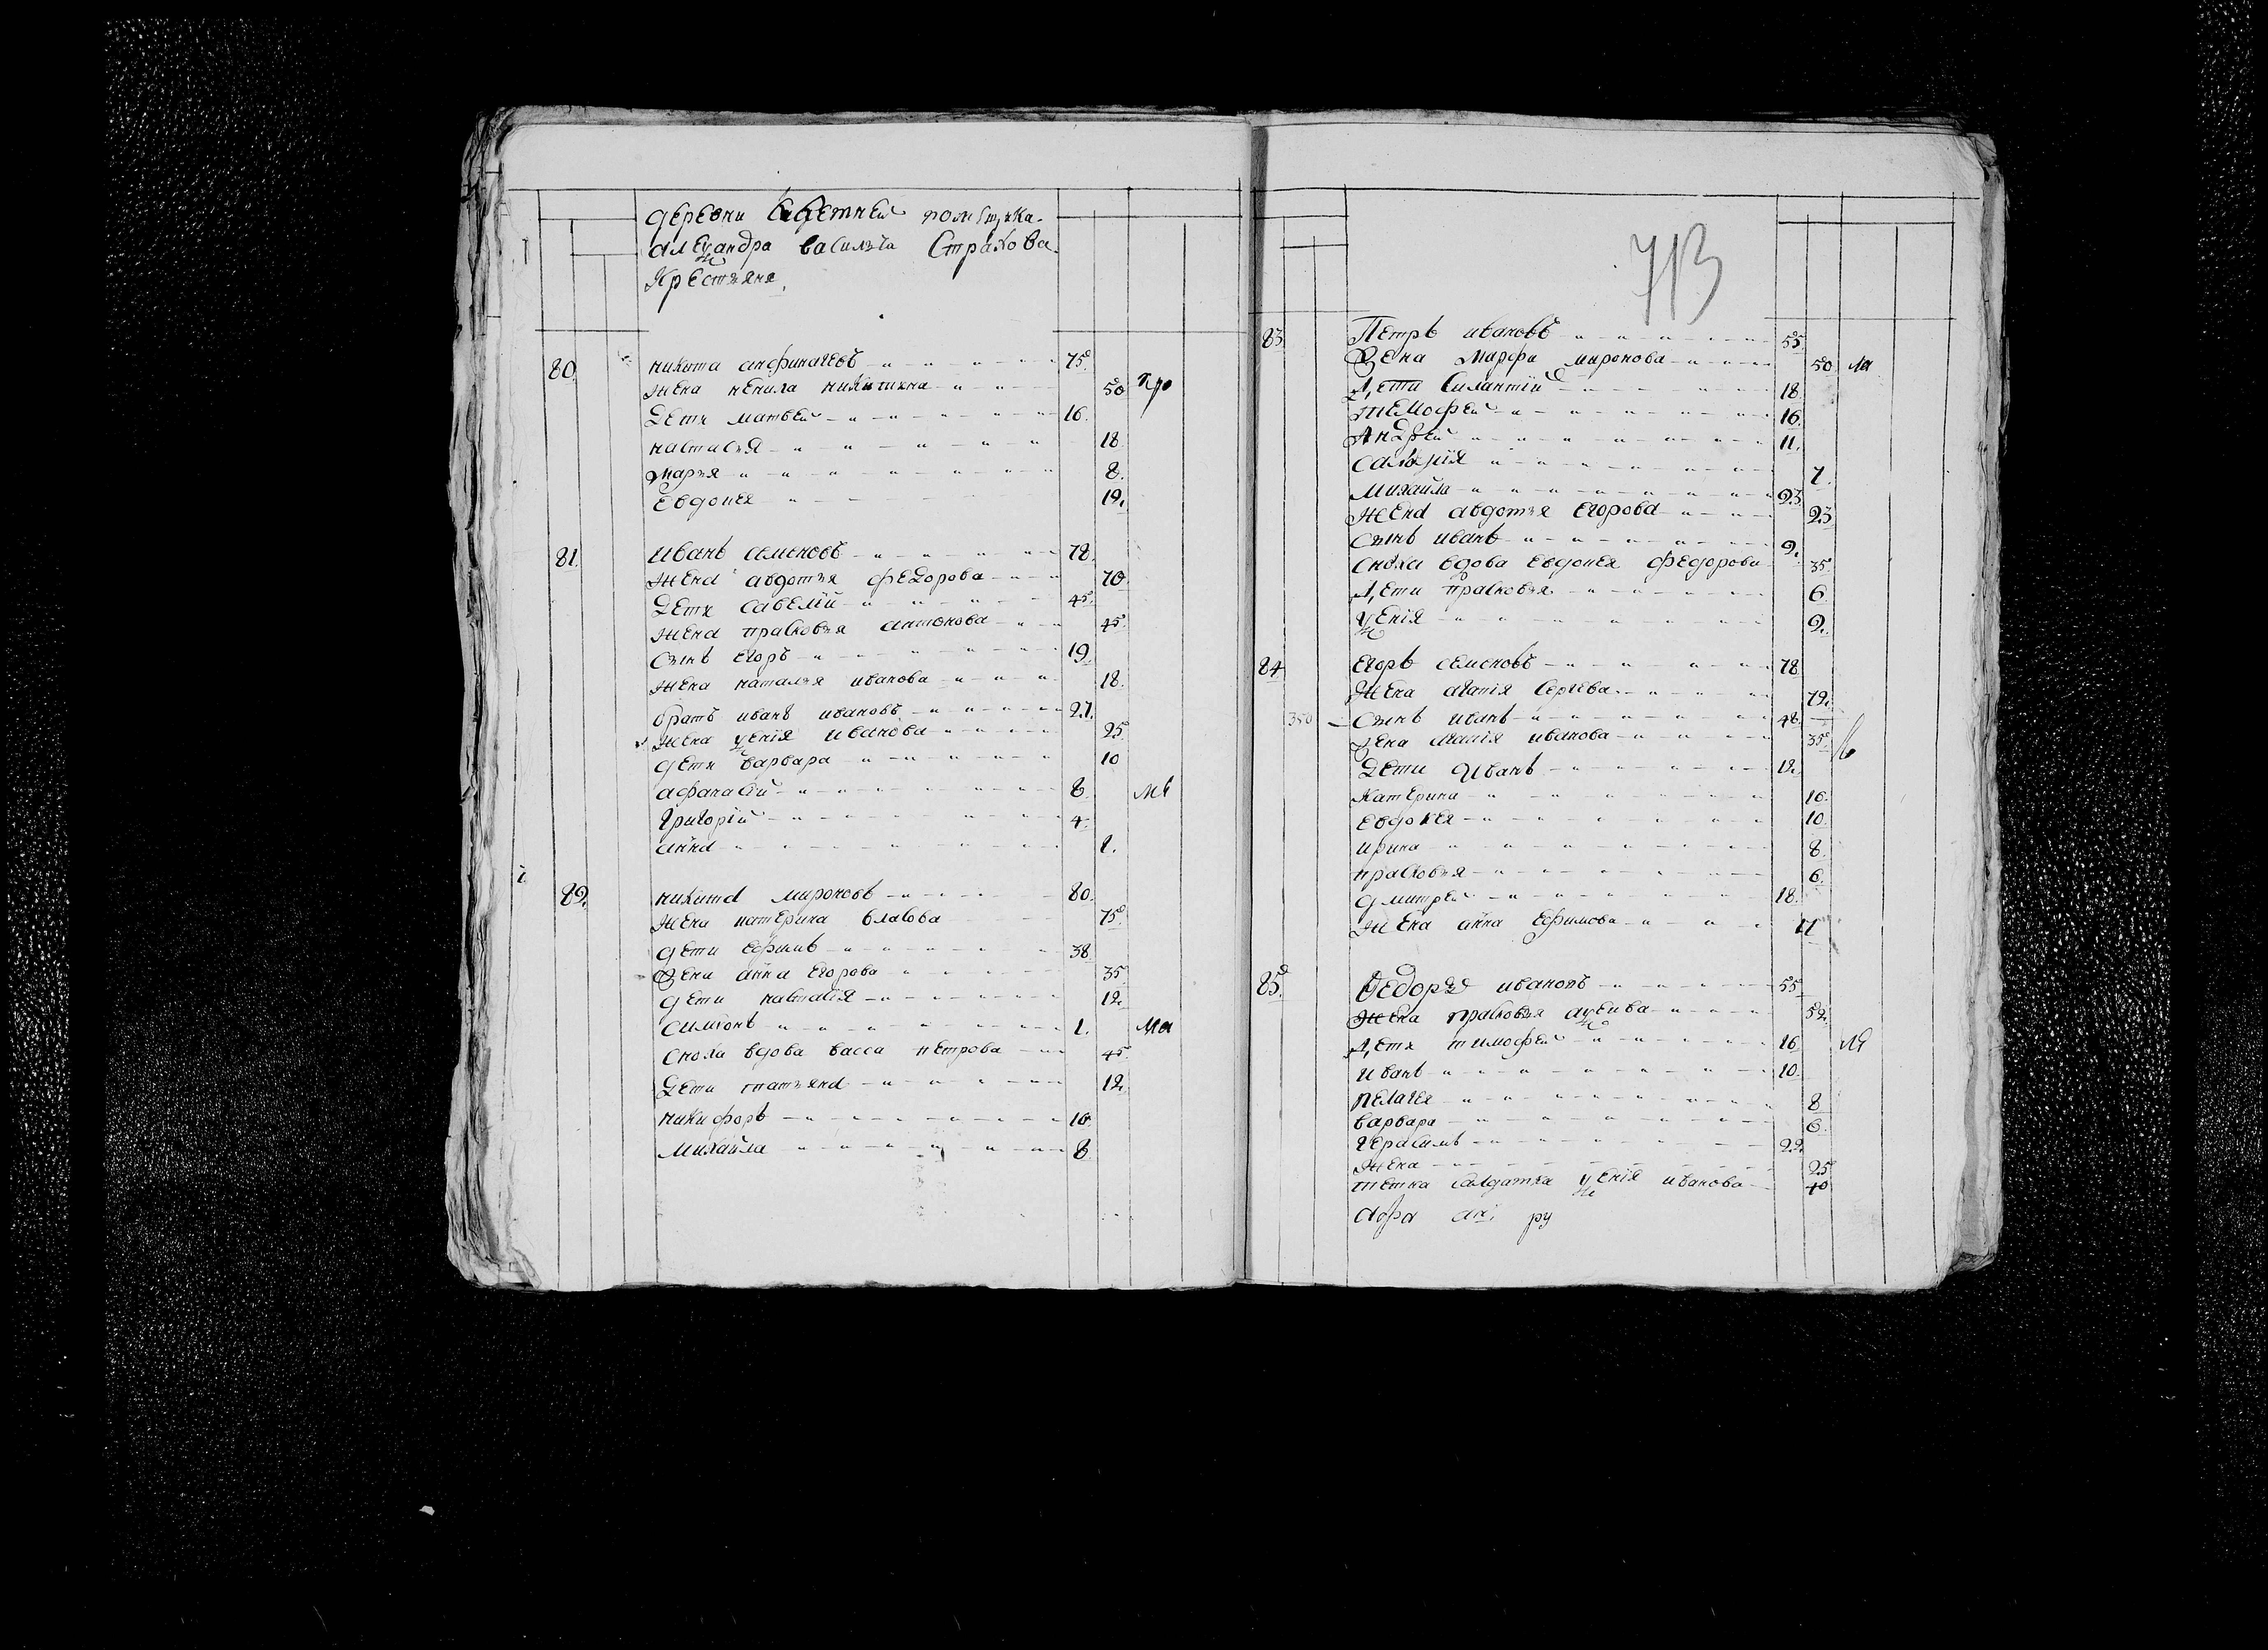 деревни помещика
Александра васильича Страхова
Крестьяне
80. никита анфиногевъ 75
жена ненила никитина 50 пр
дети матвей 16.
настасья 18
марья 8.
Евдокея 12.
81. иванъ семеновъ 78.
жена авдотья федорова 70
дети савелiй 45.
жена прасковья антонова 45
сынъ Егоръ 19
жена наталья иванова 18.
братъ иванъ ивановъ 27.
жена ѯенiя иванова 25
дети варвара 10
афанасiй 8. мк
григорiй 4.
анна 1.
82. никита мироновъ 80.
жена катерина власова 75
дети ефимъ 38
жена анна Егорова 35
дети настасiя 12.
симионъ 1. ма
сноха вдова васса петрова 45
дети татьяна 12.
никифоръ 10.
михайла 8
713
83. Петръ ивановъ 55
жена марфа миронова 50 ма
дети силантiй 18
тимофей 16.
Андрей 11.
7.
михайла 23
жена авдотья Егорова 23
сынъ иванъ 2.
сноха вдова Евдокея федорова 35
дети прасковья 6
ѯенiя 2.
84 Егоръ семеновъ 78
жена агапiя сергева 72.
350 сынъ иванъ 48.
жена агапiя иванова 35
дети Иванъ 12.
Катерина 16.
Евдокея 10
ирина 8.
прасковья 6.
дмитрей 18.
жена анна Ефимова 17
85. Федоръ ивановъ 55
жена прасковья аѯенва 52.
дети тимофей 16
иванъ 10.
пелагея 8
варвара 6.
герасимъ 22
жена 25
тетка салдатка ѯенiя иванова 40
ру